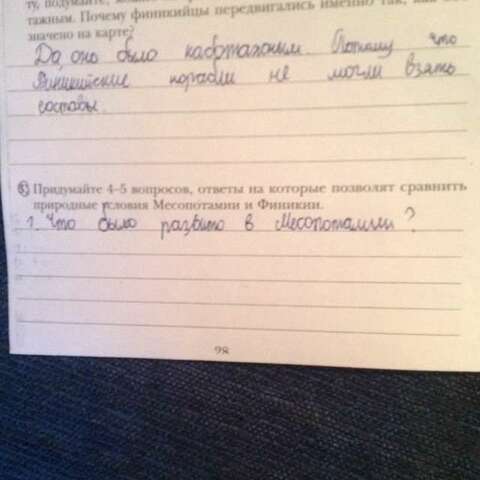 ту, подумайте, можно
тажным. Почему финикийцы передвигались именно так, как
значено на карте?
Да, оно было каботажным. Потому что
Финикийские корабли не могли взять
составы.
Придумайте 4–5 вопросов, ответы на которые позволят сравнить
природные условия Месопотамии и Финикии.
1. Что было развито в Месопотамии?
98